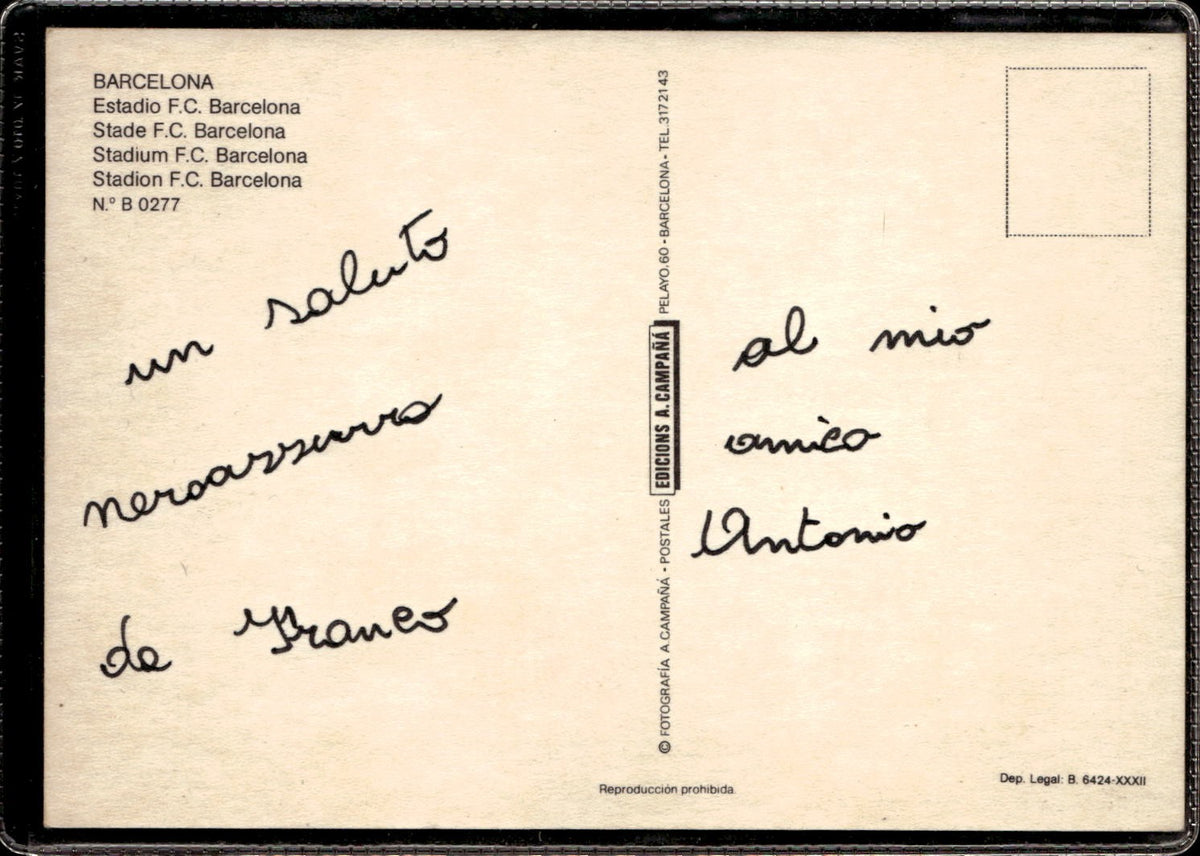 BARCELONA
Estadio F.C. Barcelona
Stade F.C. Barcelona
Stadium F.C. Barcelona
Stadion F.C. Barcelona
N.º B 0277
un saluto
neroazzurro
de Franco
© FOTOGRAFÍA A.CAMPAÑÁ - POSTALES EDICIONS A.CAMPAÑÁ PELAYO,60 - BARCELONA - TEL.3172143
al mio
amico
Antonio
Reproducción prohibida
Dep. Legal: B. 6424-XXXII